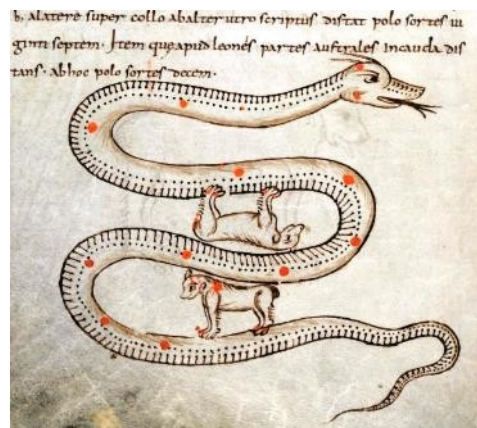 b. a latere super collo ab alter utro scriptus distat polo sortes ui
ginti septem. Item que apud leones partes australes in cauda dis
tans. ab hoc polo sortes decem.